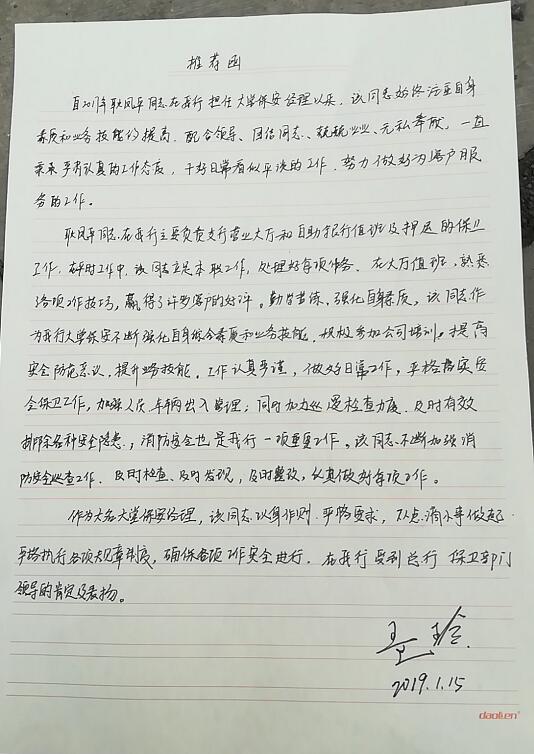 推荐函
自2011年耿凤平同志在我行担任大堂保安经理以来，该同志始终注重自身
素质和业务技能的提高，配合领导、团结同志、兢兢业业、无私奉献，一直
秉承严肃认真的工作态度，干好日常看似平淡的工作，努力做好为客户服
务的工作。
耿凤平同志在我行主要负责支行营业大厅和自助银行值班及押运的保卫
工作，在平时工作中，该同志立足本职工作，处理好每项任务。在大厅值班，熟悉
各项工作技巧，赢得了许多客户的好评。勤学苦练，强化自身素质，该同志作
为我行大堂保安不断强化自身综合素质和业务技能，积极参加公司培训。提高
安全防范意识，提升业务技能。工作认真严谨，做好日常工作，严格落实安
全保卫工作，加强人员、车辆出入管理；同时加大巡逻检查力度，及时有效
排除各种安全隐患，消防安全也是我行一项重要工作。该同志不断加强消
防安全巡查工作，及时检查、及时发现，及时整改，认真做到每项工作。
作为大名大堂保安经理，该同志以身作则，严防要求，从点滴小事做起
严格执行各项规章制度，确保各项工作安全进行，在我行受到总行保卫部门
领导的肯定及表扬。
2019.1.15
daolien